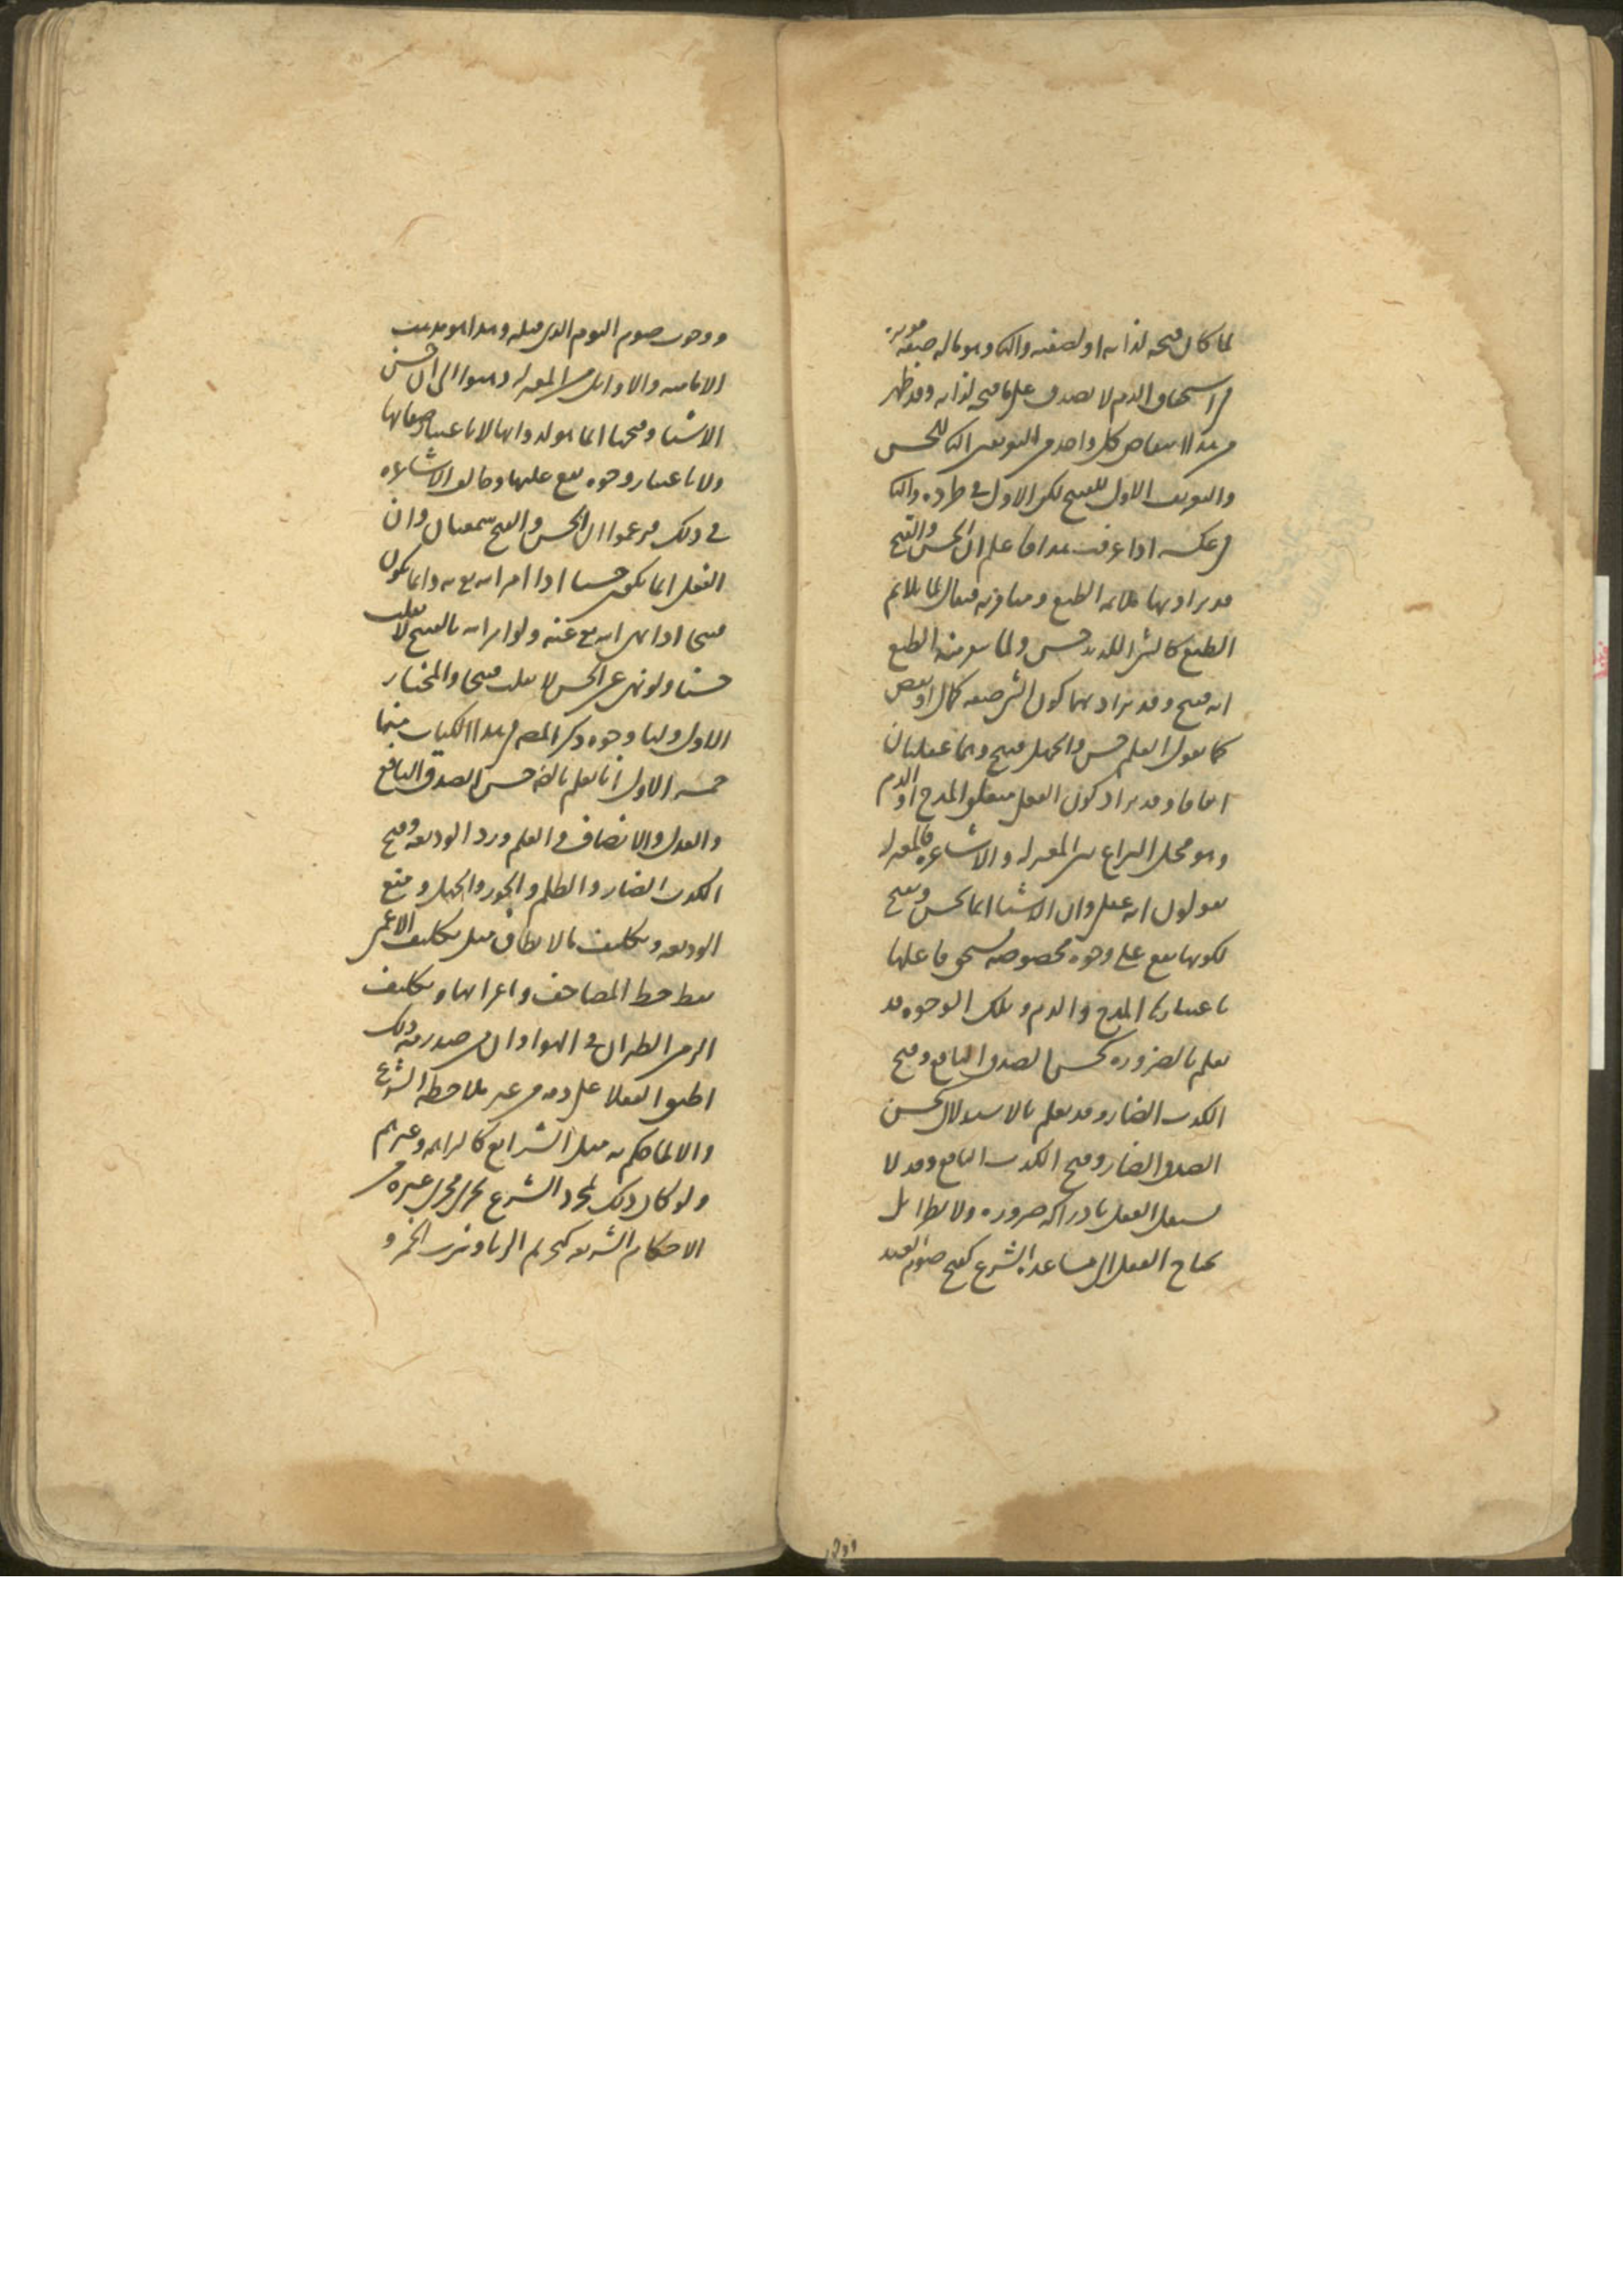 لما كان قبحه لذاته او لصفته والثا وهو ماله صفة موثرة
في استحقاق الذم لا يصدق على ما قبح لذاته وقد ظهر
من هذا انتقاض كل واحد من التعريفين الثا للحسن
والتعريف الاول للقبيح لكن الاول في طرده والثا
في عكسه اذا عرفت هذا فاعلم ان الحسن والقبح
قد يراد بهما ملائمة الطبع ومنافرته فيقال لما يلائم
الطبع كالشي اللذيذ حسن ولما ينفر منه الطبع
انه قبيح وقد يراد بهما كون الشي صفة كمال او نقص
كما يقول العلم حسن والجهل قبيح وهما عقليان
اتفاقا وقد يراد كون الفعل متعلق المدح او الذم
وهو محل النزاع بين المعتزلة والاشاعرة فالمعتزلة
يقولون انه عقلي وان الاشيا انما تحسن وتقبح
لكونها تقع على وجوه مخصوصة يستحق فاعلها
باعتبارها المدح والذم وتلك الوجوه قد
تعلم بالضرورة كحسن الصدق النافع وقبح
الكذب الضار وقد تعلم بالاستدلال كحسن
الصدق الضار وقبح الكذب النافع وقد لا
يستقل العقل بادراكه ضرورة ولا نظرا بل
يحتاج العقل الى مساعدة الشرع كقبح صوم العيد
ووجوب صوم اليوم الذي قبله وهذا هو مذهب
الامامية والاوائل من المعتزلة ذهبوا الى ان حسن
الاشيا وقبحها انما هو لذواتها لا باعتبار صفاتها
ولا باعتبار وجوه تقع عليها وخالف الاشاعرة
في ذلك فزعموا ان الحسن والقبح سمعيان وان
الفعل انما يكون حسنا اذا امر الله تع به وانما يكون
قبيحا اذا نهى الله تع عنه ولو امر الله بالقبيح لانقلب
حسنا ولو نهى عن الحسن لانقلب قبيحا والمختار
الاول ولنا وجوه ذكر المصر في هذا الكتاب منها
خمسة الاول انا نعلم بالضر حسن الصدق النافع
والعدل والانصاف والعلم ورد الوديعة وقبح
الكذب الضار والظلم والجور والجهل ومنع
الوديعة وتكليف ما لا يطاق مثل تكليف الاعمى
نقط خط المصاحف واعرابها وتكليف
الزمن الطيران في الهوا وان من صدر منه ذلك
اطبق العقلا على ذمه من غير ملاحظة الشرع
والا لما حكم به مثل الشرايع كالبراهمة وغيرهم
ولو كان ذلك لمجرد الشرع لجرى مجرى غيره من
الاحكام الشرعية كتحريم الربا وشرب الخمر و